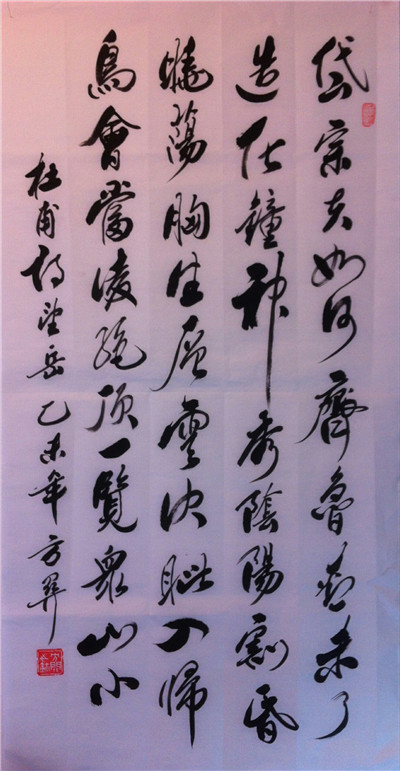 岱宗夫如何齊魯青未了
造化鐘神秀陰陽割昏
曉蕩胸生層雲決眦入歸
鳥會當凌絕頂一覽眾山小
杜甫詩望岳乙未年方